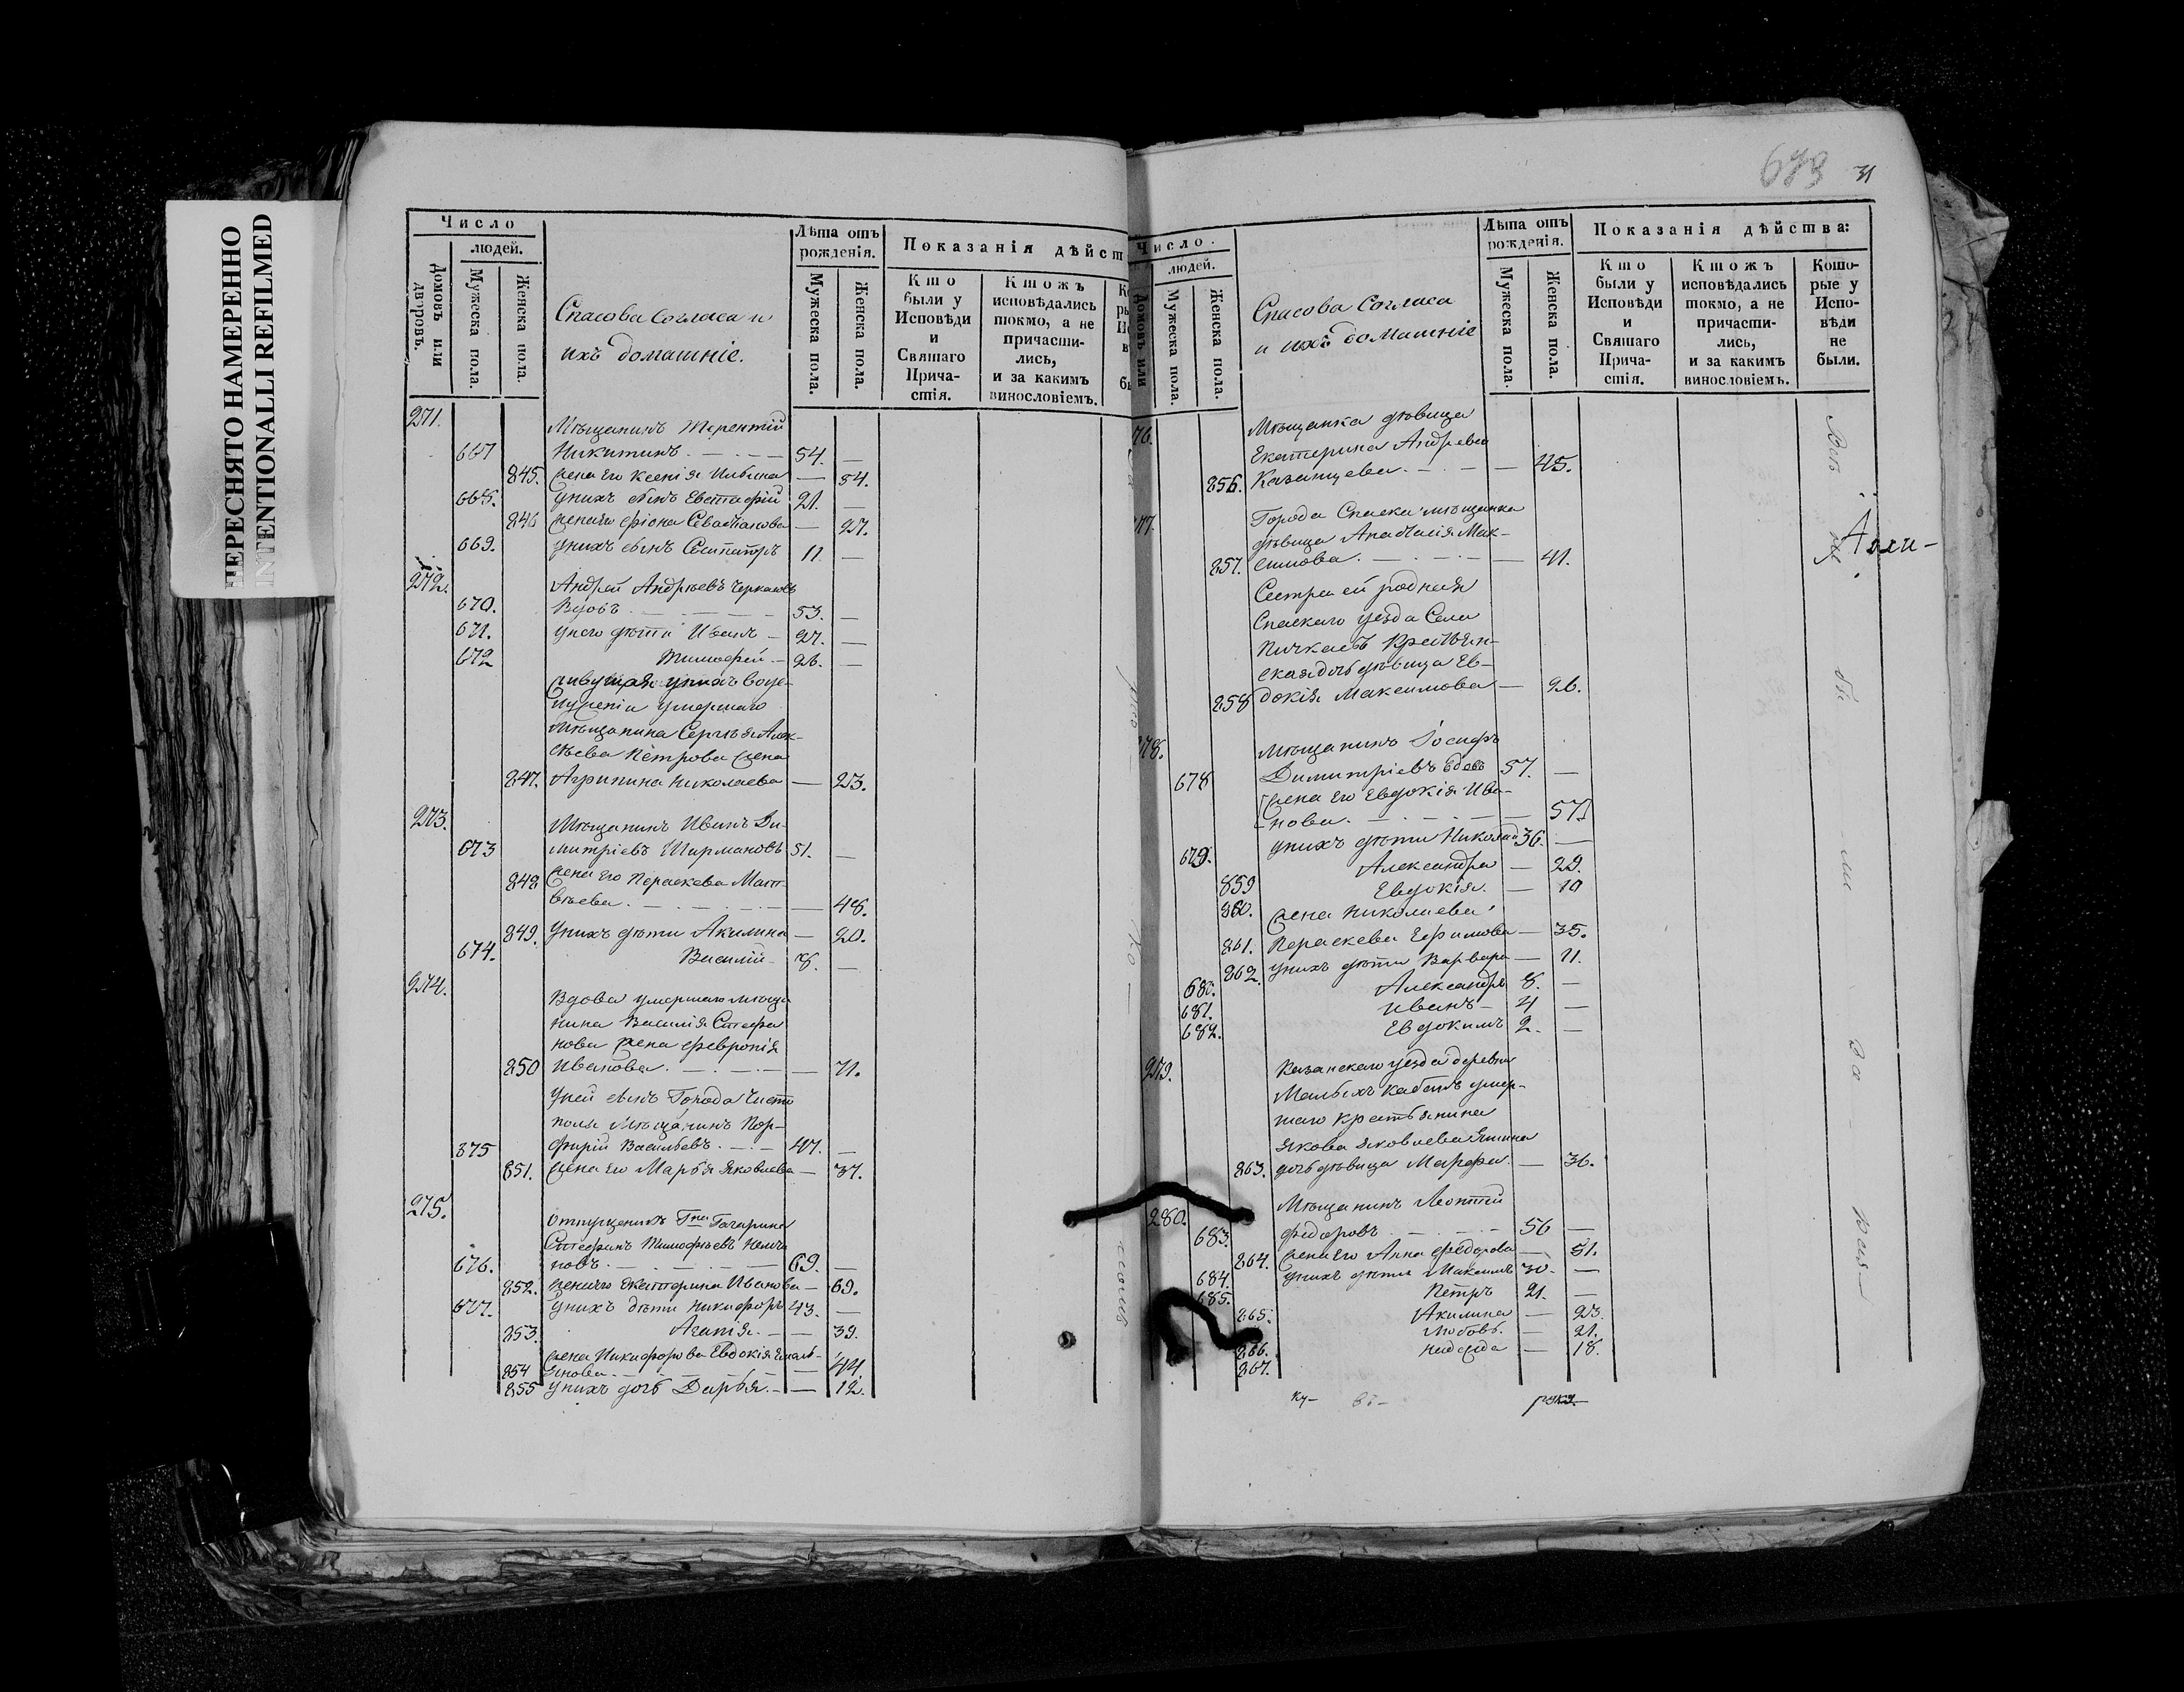 ПЕРЕСНЯТО НАМЕРЕННО
INTENTIONALLI REFILMED
Число
людей.
Домовъ или дворовъ.
Мужеска пола.
Женска пола.
Спасова Согласа и
ихъ домашніе.
Лѣта отъ рожденія.
Мужеска пола.
Женска пола.
Показанія дѣйст
Кто были у Исповѣди и Святаго Прича-стія.
Ктожъ исповѣдались токмо, а не причасти-лись, и за какимъ винословіемъ.
271.
Мѣщанинъ Терентій
667 Никитинъ. — 54. —
845. жена его Ксенія Ильина — 54.
668. у нихъ сынъ Евстафій 21. —
846 жена его Фіона Севастіанова — 27.
669. у нихъ сынъ 11 —
272. Андрей Андрѣевъ Черкасовъ
670. Вдовъ. — 53. —
671. у него дѣти Иванъ — 27. —
672 Тимофей. — 26. —
живущая у нихъ въ усе-
умершаго
Мѣщанина Сергѣя Алек-
сѣева Петрова жена
847. Агрипина Николаева — 23.
273. Мѣщанинъ Иванъ Ди-
673 митріевъ Шармановъ 51. —
848 жена его Пораскева Мат-
вѣева. — 48.
849. у нихъ дѣти Акилина — 20.
674. Василій — 8. —
274. Вдова умершаго мѣща
нина Василія Стефа
нова жена Февронія
850 Иванова. — 71.
У ней сынъ Города Чисто
поля Мѣщанинъ Пор-
875 фирій Васильевъ. — 47. —
851. жена его Марья Яковлева — 37.
275. отпущеникъ Гна Гагарина
Стефанъ Тимофѣевъ
676. новъ. — 69. —
852. жена его Екатерина Иванова — 69.
677. у нихъ дѣти Никифоръ 43. —
853. Агатія. — 39.
жена Никифорова Евдокія Емель-
854 янова. — 44.
855 у нихъ дочь Дарья. — 12.
673 31
Число.
людей.
Домовъ или
Мужеска пола.
Женска пола.
Спасова Согласа
и ихъ домашніе
Лѣта отъ рожденія.
Мужеска пола.
Женска пола.
Показанія дѣйства:
Кто были у Исповѣди и Святаго Прича-стія.
Ктожъ исповѣдались токмо, а не причасти-лись, и за какимъ винословіемъ.
Кото-рые у Испо-вѣди не были.
76. Мѣщанка дѣвица
Екатерина Андрѣева
856. Казанцева. — 45.
77. Города Спаска мѣщанка
дѣвица Анастасія Мак-
857. симова. — 41.
Сестра ей родная
Спаскаго уезда Села
Пичкасъ Крестьян-
ская дочь дѣвица Ев-
858 докія Максимова — 26.
78. Мѣщанинъ Іосифъ
678 Димитріевъ Вдовъ 57. —
жена его Евдокія Ива-
нова. — 57
679. у нихъ дѣти Николай 36. —
859 Александра — 29.
860. Евдокія. — 19
жена Николаева
861. Пераскева Ефимова — 35.
862. у нихъ дѣти Варвара — 11.
680. Александръ 8. —
681. Иванъ — 4 —
682. Евдокимъ 2. —
279. Казанскаго уезда деревни
Малыхъ Кабанъ умер-
шаго Крестьянина
Якова Яковлева
863. дочь дѣвица Марфа. — 36.
280. Мѣщанинъ Леонтій
683. Федоровъ — 56 —
864. жена его Анна Федорова — 51.
684. у нихъ дѣти Максимъ 30. —
685. Петръ 21. —
865. Акилина — 23.
866. Любовь. — 21.
867. Надежда — 18.